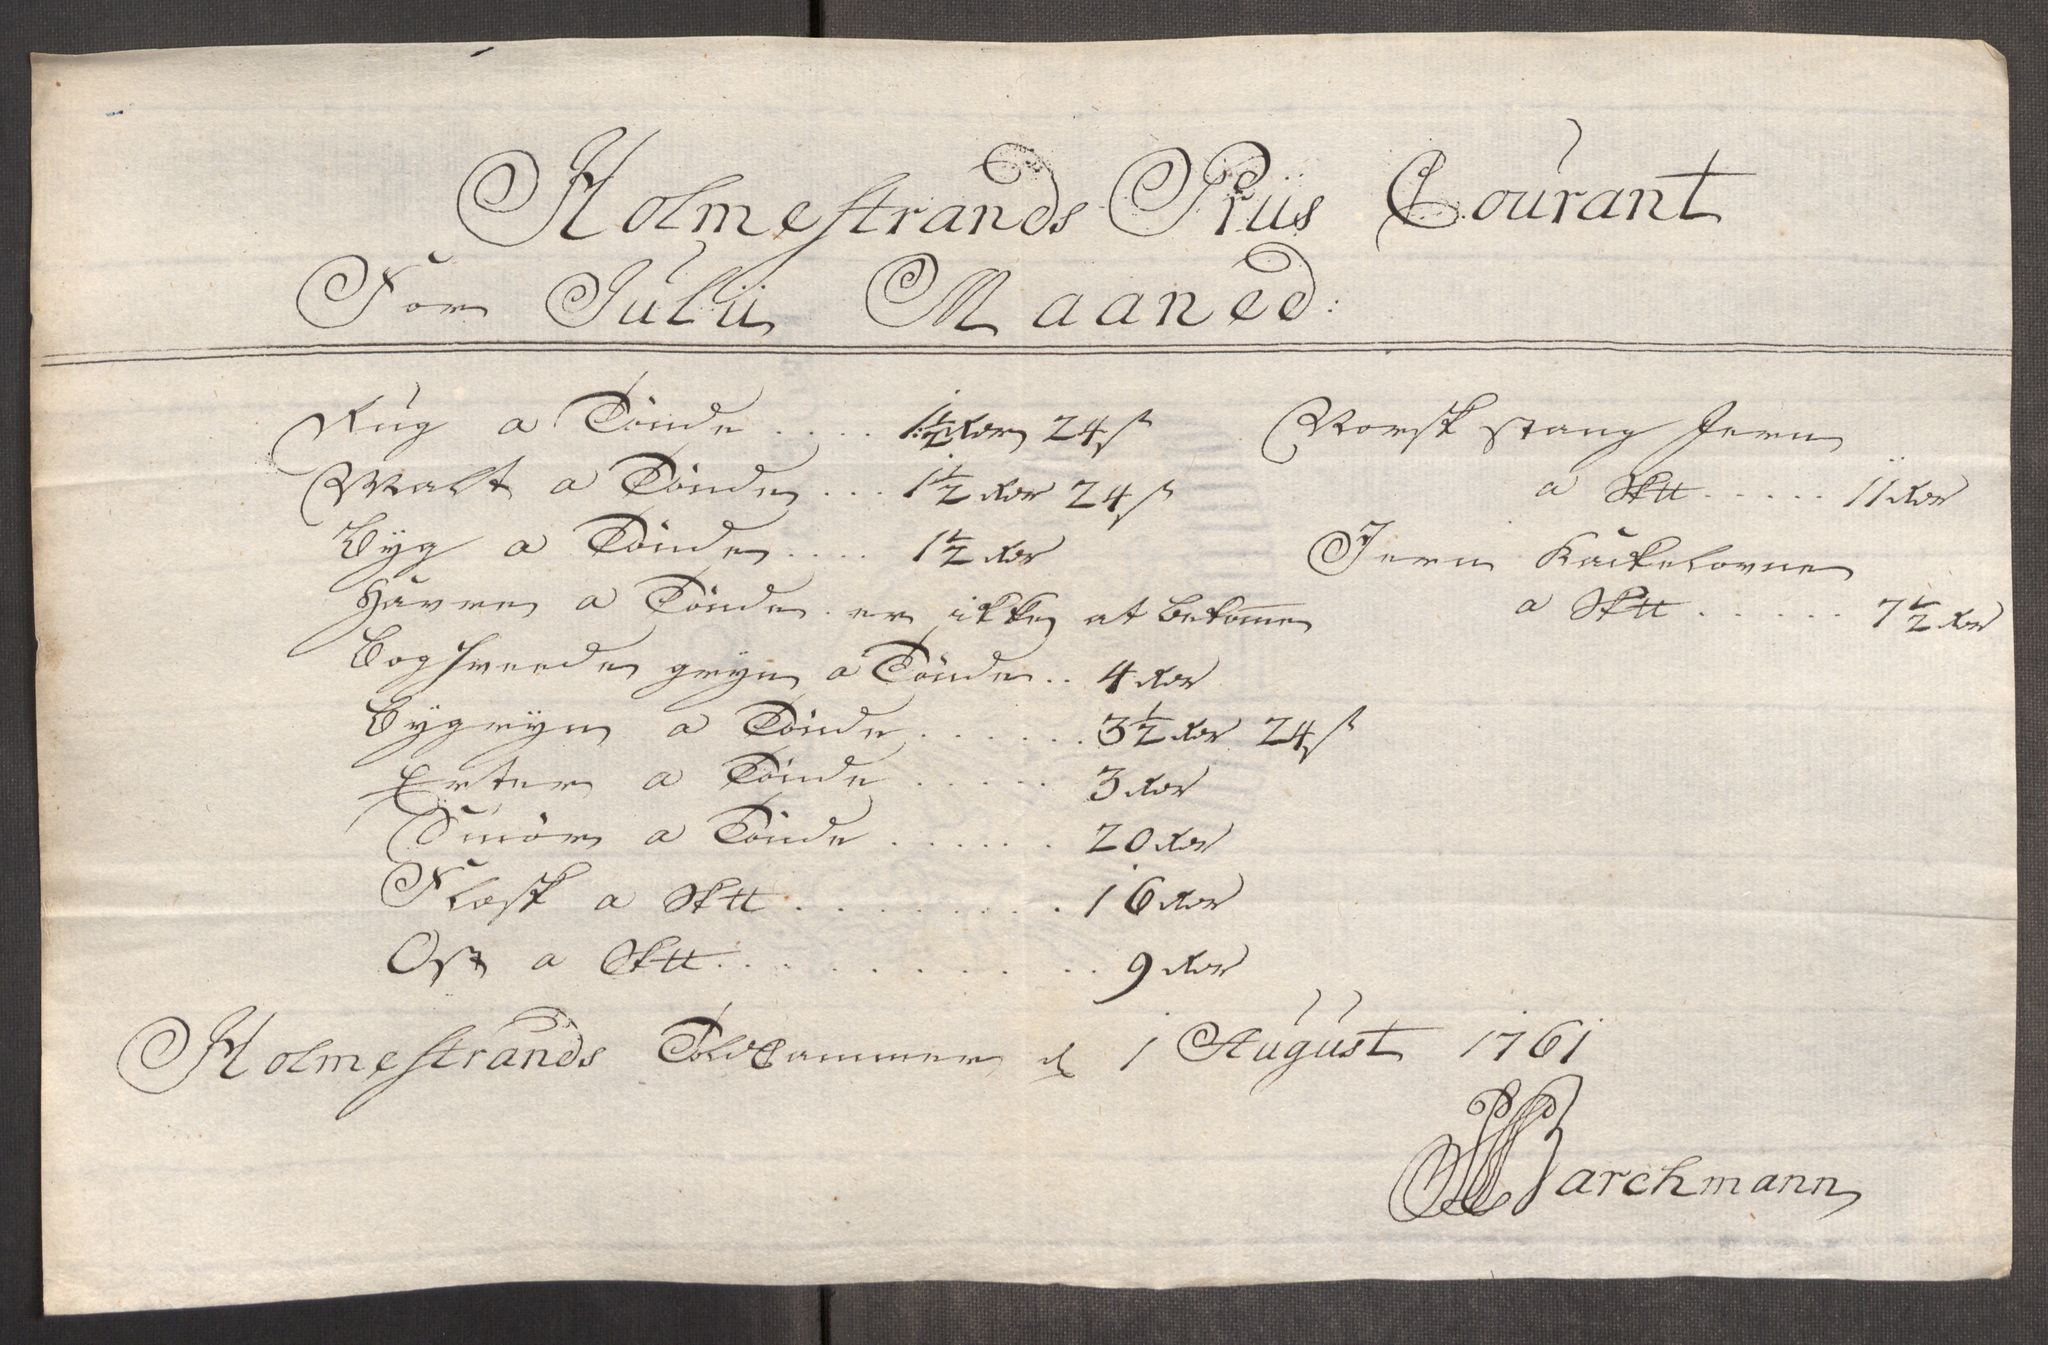 Holmestrands Priis Courant
For Julii Maaned:
Rug a Tönde .... 1½ Rdr 24 ß
Malt a Tönde ... 1½ Rdr 24 ß
Byg a Tönde .... 1½ Rdr
Havre a Tönde er ikke at bekomme
Boghvede gryn a Tönde .. 4 Rdr
Bygryn a Tönde ...... 3½ Rdr 24 ß
Erter a Tönde ..... 3 Rdr
Smör a Tönde ...... 20 Rdr
Flæsk a Sktt ......... 16 Rdr
Ost a Sktt .......... 9 Rdr
Norsk stang Jern
a Sktt ..... 11 Rdr
Jern Kackelovne
a Sktt ...... 7½ Rdr
Holmestrands Toldkammer d 1 August 1761
Barchmann